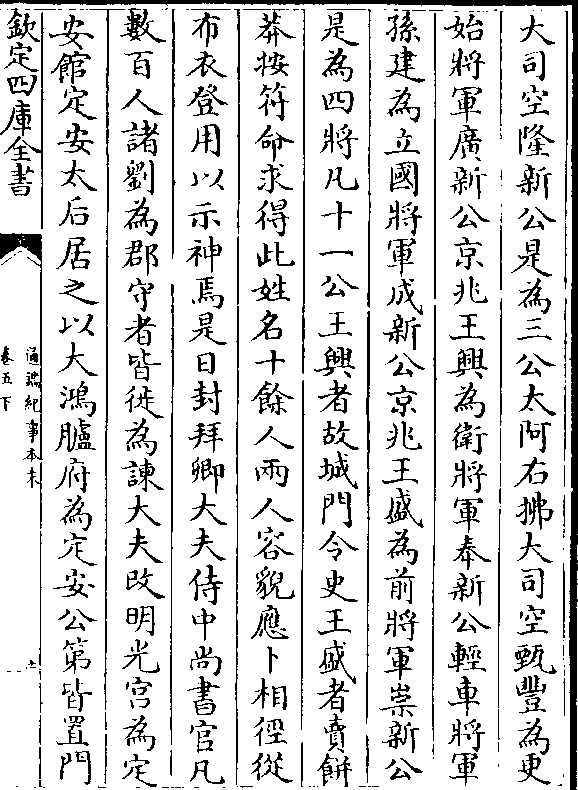 大司空隆新公是為三公太阿右拂大司空甄豐為更
始將軍廣新公京兆王興為衛將軍奉新公輕車將軍
孫建為立國將軍成新公京兆王盛為前將軍崇新公
是為四將凡十一公王興者故城門令史王盛者賣餅
莽按符命求得此姓名十餘人兩人容貌應卜相徑從
布衣登用以示神焉是日封拜卿大夫侍中尚書官凡
數百人諸劉為郡守者皆徙為諫大夫改明光宫為定
安館定安太后居之以大鴻臚府為定安公第皆置門
欽定四庫全書
通鑑紀事本末
卷五下